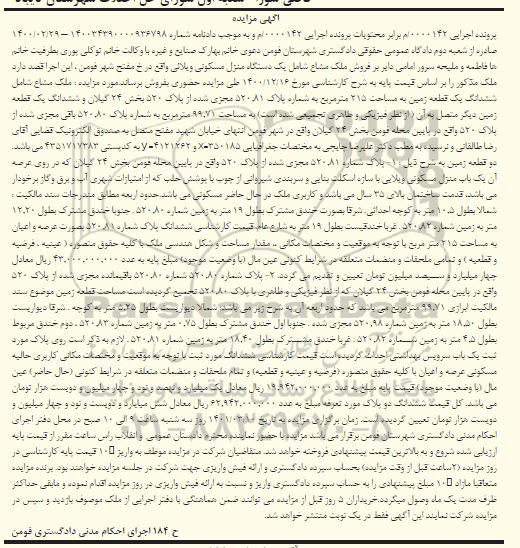 آگهی مزایده
پرونده اجرایی ۰۰۰۰۱۴۲/م برابر محتویات پرونده اجرایی ۰۰۰۰۱۴۲/م و به موجب دادنامه شماره ۱۴۰۰۳۴۳۹۰۰۰۰۹۳۶۷۹۸ – ۱۴۰۰/۰۲/۲۹
صادره از شعبه دوم دادگاه عمومی حقوقی دادگستری شهرستان فومن دعوی خانم بهارک صنایع و غیره با وکالت خانم توکلی پوری بطرفیت خانم
ها فاطمه و ملیحه سرور امامی دایر بر فروش ملک مشاع شامل یک دستگاه منزل مسکونی ویلائی واقع در خ مفتح شهر فومن ، این اجرا قصد دارد
ملک مذکور را بر اساس قیمت پایه به شرح کارشناسی مورخ ۱۴۰۰/۱۲/۱۶ طی مزایده حضوری بفروش برساند.مورد مزایده : ملک مشاع شامل
ششدانگ یک قطعه زمین به مساحت ۲۱۵ مترمربع به شماره پلاک ۵۲۰.۸۱ مجزی شده از پلاک ۵۲۰ بخش ۲۴ گیلان و ششدانگ یک قطعه
زمین دیگر متصل به آن ( از نظر فیزیکی و ظاهری تجمیعی شده است) به مساحت ۹۹.۷۱ مترمربع به شماره پلاک ۵۲۰.۸۰ باقی مجزی شده از
پلاک ۵۲۰ واقع در پایین محله فومن بخش ۲۴ گیلان واقع در شهر فومن انتهای خیابان شهید مفتح متصل به صندوق الکترونیک قضایی آقای
رضا طالقانی و نرسیده به مطب دکتر علیرضا حاجیجی به مختصات جغرافیایی ۳۵۰۱۸۵=X و ۴۱۲۱۲۶۲=Y به کدپستی ۴۳۵۱۷۱۷۳۸۳ می باشد.
دو قطعه زمین به شرح ذیل: ۱- پلاک شماره ۵۲۰.۸۱ مجزی شده از پلاک ۵۲۰ واقع در پایین محله فومن بخش ۲۴ گیلان که در روی عرصه
آن یک باب منزل مسکونی ویلایی با سازه اسکلت بنایی و سربندی شیروانی از چوب با پوشش حلب که از امتیازات شهری آب و برق وگاز برخوردار
می باشد، قدمت ساختمان بالای ۳۵ سال می باشد و کاربری ملک در حال حاضر مسکونی می باشد.حدود اربعه مطابق مندرجات سند مالکیت :
شمالا بطول ۱۰.۵ متر به کوچه احداثی. شرقا بصورت خندق مشترک بطول ۱۹ متر به زمین شماره ۵۲۰.۸۰ . جنوبا خندق مشترک بطول ۱۲.۲۰
متر به زمین شماره ۵۲۰.۸۲ . غربا خندقیست بطول ۱۹ متر به شارع عام. قیمت کارشناسی ششدانگ پلاک شماره ۵۲۰.۸۱ بصورت عرصه و اعیان
به مساحت ۲۱۵ متر مربع با توجه به موقعیت و مختصات مکانی .. مقدار مساحت و شکل هندسی ملک با کلیه حقوق متصوره ( عینیه ، فرضیه
و قطعیه ) و تمامی ملحقات و منضمات متعلقه در شرایط کنونی عین مال (با وضعیت موجود) مبلغ پایه به عدد ۴۳،۰۰۰،۰۰۰،۰۰۰ ریال معادل
چهار میلیارد و سیصد میلیون تومان تعیین و تقدیم می گردد. ۲- پلاک شماره ۵۲۰.۸۰ شماره ۵۲۰.۸۰ باقیمانده مجزی شده از پلاک ۵۲۰
واقع در پایین محله فومن بخش ۲۴ گیلان که از نظر فیزیکی و ظاهری با پلاک ۵۲۰.۸۰ تجمیع گردیده است مساحت قطعه زمین موضوع سند
مالکیت ابرازی ۹۹.۷۱ مترمربع می باشد که حدود اربعه آن به شرح زیر می باشد: شمالا دیواریست بطول ۵.۲۵ متر به کوچه . شرقا دیواریست
بطول ۱۸.۵۰ متر به زمین شماره ۵۲۰.۹۸ مجزی شده . جنوبا اول خندق مشترک بطول ۰.۷۵ متر به زمین شماره ۵۲۰.۸۳ ، دوم خندق مربوط
بطول ۴.۵ متر به زمین شماره ۵۲۰.۸۲ . غربا خندق مشترک بطول ۱۸.۴۰ متر به زمین شماره ۵۲۰.۸۱ . لازم به ذکر است روی پلاک مورد
ثبت یک باب سرویس بهداشتی احداث گردیده است قیمت کارشناسی ششدانگ مورد ثبت با توجه به موقعیت و مختصات مکانی کاربری حالیه
مسکونی عرصه و اعیان با کلیه حقوق متصوره (فرضیه و عینیه و قطعیه) و تمام ملحقات و منضمات متعلقه در شرایط کنونی (حال حاضر) عین
مال (با وضعیت موجود) قیمت پایه مبلغ به عدد ۱۹،۹۴۲،۰۰۰،۰۰۰ ریال معادل یک میلیارد و نهصد و نود و چهار میلیون و دویست هزار تومان
می باشد. کل قیمت ششدانگ دو پلاک مورد تعرفه مبلغ به عدد ۶۲،۹۴۲،۰۰۰،۰۰۰ ریال معادل شش میلیارد و دویست و نود و چهار میلیون و
دویست هزار تومان تعیین گردیده است. زمان برگزاری مزایده به تاریخ ۱۴۰۱/۰۳/۱۰ روز سه شنبه ساعت ۹ الی ۱۰ صبح در محل دفتر اجرای
احکام مدنی دادگستری شهرستان فومن برقرار می باشد مزایده با حضور نماینده محترم دادستان عمومی و انقلاب راس ساعت مقرر از قیمت پایه
ارزیابی شده شروع و به بالاترین قیمت پیشنهادی فروخته خواهد شد. متقاضیان شرکت در مزایده موظف به واریز ۱۰٪ قیمت پایه کارشناسی در
روز مزایده (۲ساعت قبل از وقت مزایده) بحساب سپرده دادگستری و ارائه فیش واریزی جهت شرکت در جلسه مزایده خواهند بود. برنده مزایده
متعاقبا مازاد ۱۰٪ مبلغ پیشنهادی را به حساب سپرده دادگستری واریز و نسبت به ارائه فیش واریزی در روز مزایده اقدام نموده و مابقی حداکثر
ظرف مدت یک ماه وصول میگردد.خریداران ۵ روز قبل از مزایده می توانند ضمن هماهنگی با دفتر اجرایی از ملک موصوف بازدید و سپس در
مزایده شرکت نمایند این آگهی فقط در یک نوبت منتشر خواهد شد.
ح ۱۸۴ اجرای احکام مدنی دادگستری فومن